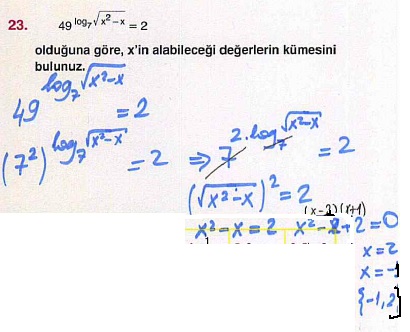 23. 49^log₇√(x²-x) = 2
olduğuna göre, x'in alabileceği değerlerin kümesini
bulunuz.
49^log₇√(x²-x) = 2
(7²)^log₇√(x²-x) = 2 ⇒ 7^2.log₇√(x²-x) = 2
(√(x²-x))² = 2
(x-2)(x+1)
x²-x = 2 x²-x+2 = 0
x=2
x=-1
{-1,2}